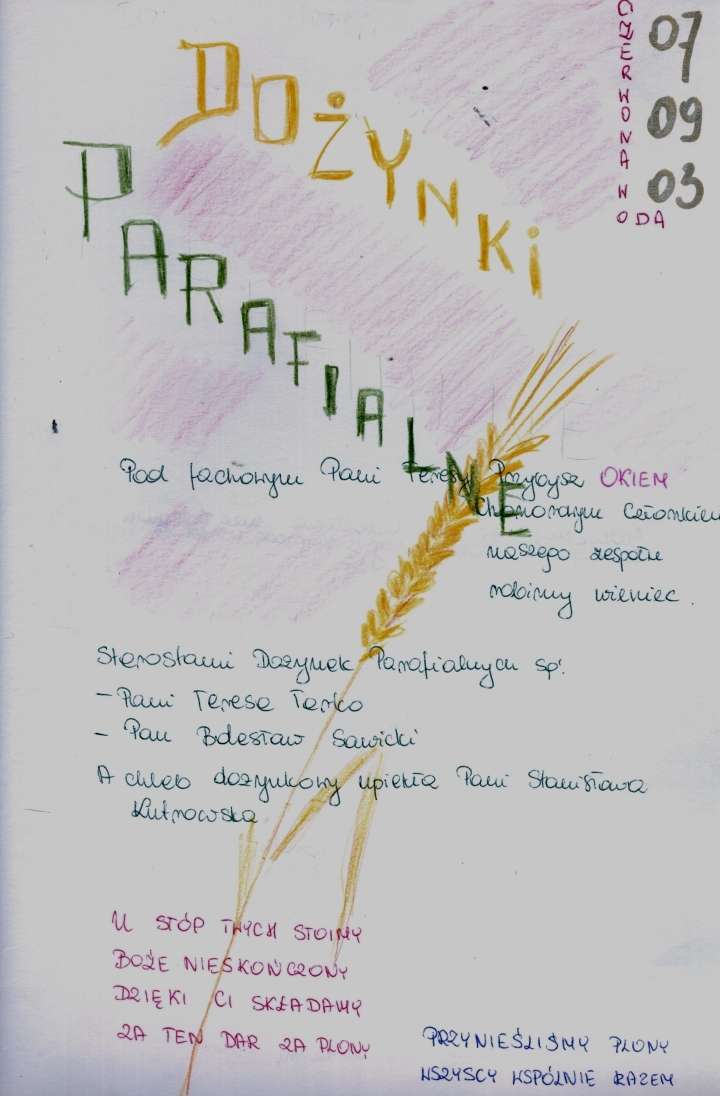 DOŻYNKI
PARAFIALNE
CZERWONA WODA
07
09
03
Pod fachowym Pani Teresy Przybysz OKIEM
honorowym członkiem
naszego zespołu
robimy wieniec.
Starostami Dożynek Parafialnych są:
- Pani Teresa Tarko
- Pan Bolesław Sawicki
A chleb dożynkowy upiekła Pani Stanisława
Kutnowska
U STÓP TWYCH STOIMY
BOŻE NIESKOŃCZONY
DZIĘKI CI SKŁADAMY
ZA TEN DAR ZA PLONY
PRZYNIEŚLIŚMY PLONY
WSZYSCY WSPÓLNIE RAZEM